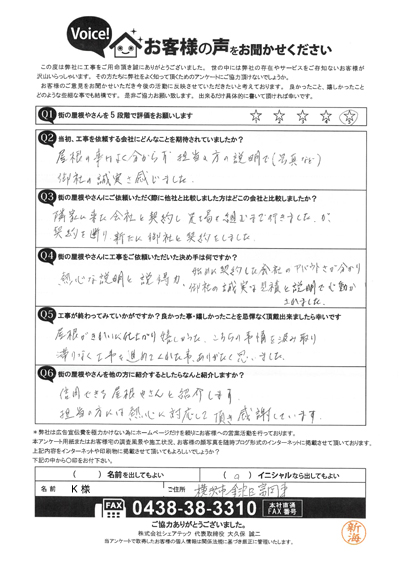 Voice!
お客様の声をお聞かせください
この度は弊社に工事をご用命頂き誠にありがとうございました。世の中には弊社の存在やサービスをご存知ないお客様が
沢山いらっしゃいます。その方たちに弊社をよく知って頂くためのアンケートにご協力頂けないでしょうか。
お客様のご意見をお聞かせいただき今後の活動に反映させていただきたいと考えております。良かったこと、嬉しかったこと
どのような些細な事でも結構です。是非ご協力お願い致します。出来るだけ具体的に書いて頂ければ幸いです。
Q1 街の屋根やさんを5段階で評価をお願いします
☆ ☆ ☆ ☆ ☆
Q2 当初、工事を依頼する会社にどんなことを期待されていましたか?
屋根の事はよく分からず 担当の方の説明で(写真など)
御社の誠実さ感じました。
Q3 街の屋根やさんにご依頼いただく際に他社と比較しました方はどこの会社と比較しましたか?
隣家に来た会社と契約し 足場を組むまで行きました。が、
契約を断り 新たに御社と契約をしました。
Q4 街の屋根やさんに工事をご依頼いただいた決め手は何ですか?
熱心な説明と説得力
契約した会社の が分かり
御社の誠実な見積と説明で心動か
されました。
Q5 工事が終わってみていかがですか?良かった事・嬉しかったことを忌憚なく頂戴出来ましたら幸いです
屋根がきれいに仕上がり 嬉しかった。こちらの事情を汲み取り
滞りなく工事を進めてくれた事、ありがたく思いました。
Q6 街の屋根やさんを他の方に紹介するとしたらなんと紹介しますか?
信用できる屋根やさんと紹介します。
担当の方には熱心に対応して頂き感謝しています。
*弊社は広告宣伝費を極力かけない為にホームページだけを頼りにお客様への営業活動を行っております。
本アンケート用紙またはお客様宅の調査風景や施工状況、お客様の顔写真を随時ブログ形式のインターネットに掲載させて頂いております。
上記内容をインターネットや印刷物に掲載させて頂いてもよろしいでしょうか?
下記の中から〇印をお付下さい。
( )名前を出してもよい
( ○ )イニシャルなら出してもよい
名前 K 様
ご住所 横浜市金沢区富岡東
FAX 0438-38-3310 本社直通 FAX番号
ご協力ありがとうございました。
株式会社シェアテック 代表取締役 大久保 誠二
当アンケートで取得したお客様の個人情報は関係法規に基づき厳正に管理いたします。
新海